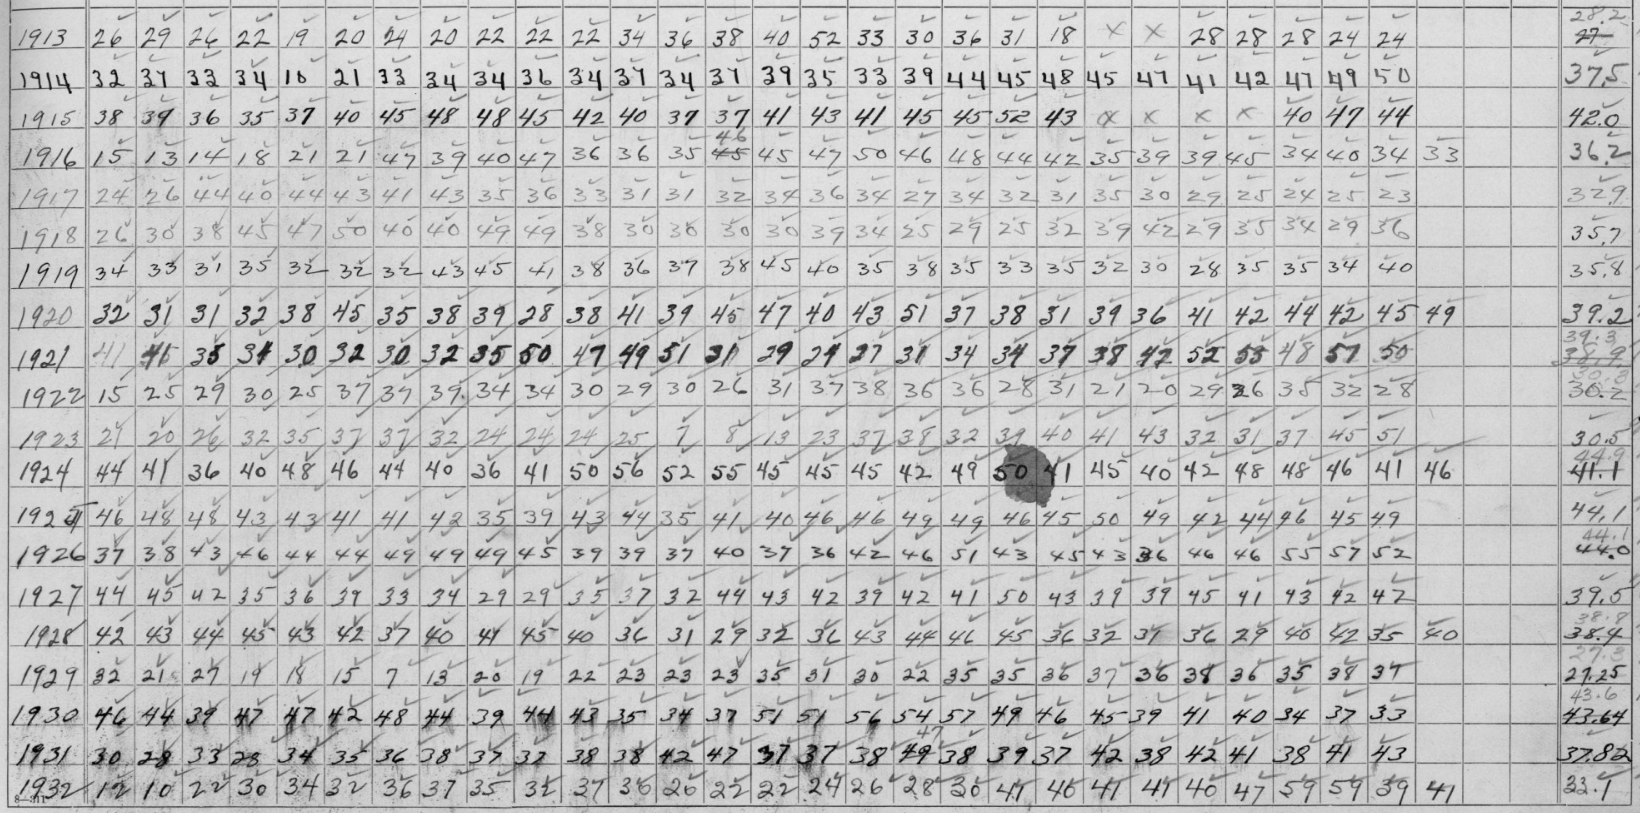 1913 26 29 26 22 19 20 24 20 22 22 22 34 36 38 40 52 33 30 36 31 18 x x 28 28 28 24 24 28.2 27
1914 32 37 33 34 10 21 33 34 34 36 34 37 34 37 39 35 33 39 44 45 48 45 47 41 42 47 49 50 37.5
1915 38 39 36 35 37 40 45 48 48 45 42 40 37 37 41 43 41 45 45 52 43 x x x x 40 47 44 42.0
1916 15 13 14 18 21 21 47 39 40 47 36 36 35 45 46 45 47 50 46 48 44 42 35 39 39 45 34 40 34 33 36.2
1917 24 26 44 40 44 43 41 43 35 36 33 31 31 32 34 36 34 27 34 32 31 35 30 29 25 24 25 23 32.9
1918 26 30 38 45 47 50 40 40 49 49 38 30 30 30 30 39 34 25 29 25 32 39 42 29 35 34 29 36 35.7
1919 34 33 31 35 32 32 32 43 45 41 38 36 37 38 45 40 35 38 35 33 35 32 30 28 35 35 34 40 35.8
1920 32 31 31 32 38 45 35 38 39 28 38 41 39 45 47 40 43 51 37 38 31 39 36 41 42 44 42 45 49 39.2
1921 41 41 35 31 30 32 30 32 35 50 47 49 51 31 29 29 27 31 34 34 37 38 42 52 55 48 57 50 39.3 38.9
1922 15 25 29 30 25 37 37 39 34 34 30 29 30 26 31 37 38 36 36 28 31 21 20 29 26 35 32 28 30.8 30.2
1923 21 20 26 32 35 37 37 32 24 24 24 25 7 8 13 23 37 38 32 39 40 41 43 32 31 37 45 51 30.5
1924 44 41 36 40 48 46 44 40 36 41 50 56 52 55 45 45 45 42 49 50 41 45 40 42 48 48 46 41 46 44.9 41.1
1925 46 48 48 43 43 41 41 42 35 39 43 44 35 41 40 46 46 49 49 46 45 50 49 42 44 46 45 49 44.1
1926 37 38 43 46 44 44 49 49 49 45 39 39 37 40 37 36 42 46 51 43 45 43 36 46 46 55 57 52 44.1 44.0
1927 44 45 42 35 36 39 33 34 29 29 35 37 32 44 43 42 39 42 41 50 43 39 39 45 41 43 42 42 39.5
1928 42 43 44 45 43 42 37 40 41 45 40 36 31 29 32 36 43 44 46 45 36 32 31 36 29 40 42 35 40 38.8 38.4
1929 32 21 27 19 18 15 7 13 20 19 22 23 23 23 35 31 30 22 35 35 36 37 36 38 36 35 38 37 27.3 27.25
1930 46 44 39 47 47 42 48 44 39 44 43 35 34 37 51 51 56 54 57 49 46 45 39 41 40 34 37 33 43.6 43.64
1931 30 28 33 28 34 35 36 38 37 37 38 38 42 47 37 37 38 49 47 38 39 37 42 38 42 41 38 41 43 37.82
1932 12 10 22 30 34 32 36 37 35 32 37 36 26 22 22 24 26 28 30 41 40 41 41 40 47 59 59 39 41 33.1